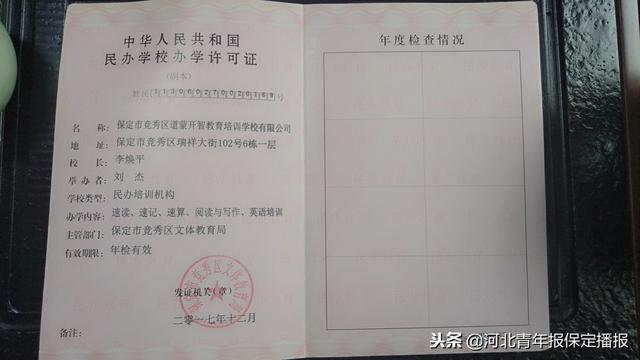 中华人民共和国
民办学校办学许可证
(副本)
教民113060270020169号
名称：保定市竞秀区道蒙开智教育培训学校有限公司
地址：保定市竞秀区瑞祥大街102号6栋一层
校长：李焕平
举办者：刘杰
学校类型：民办培训机构
办学内容：速读、速记、速算、阅读与写作、英语培训
主管部门：保定市竞秀区文体教育局
有效期限：年检有效
发证机关(章)
保定市竞秀区文体教育局
二〇一七年十二月
备注：
年度检查情况
头条 @河北青年报保定播报